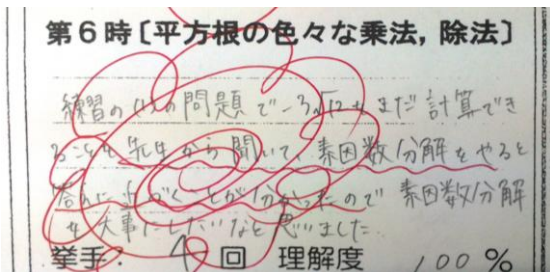 第6時〔平方根の色々な乗法,除法〕
練習の(1)の問題で-3√12もまだ計算でき
ることを先生から聞いて、素因数分解をやると
答えにちがくことが分かったので 素因数分解
を大事にしたいなと思いました。
挙手: 4回 理解度 100%